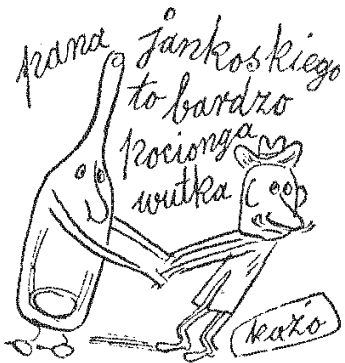 pana jankoskiego
to bardzo
pocionga
wutka
kazio